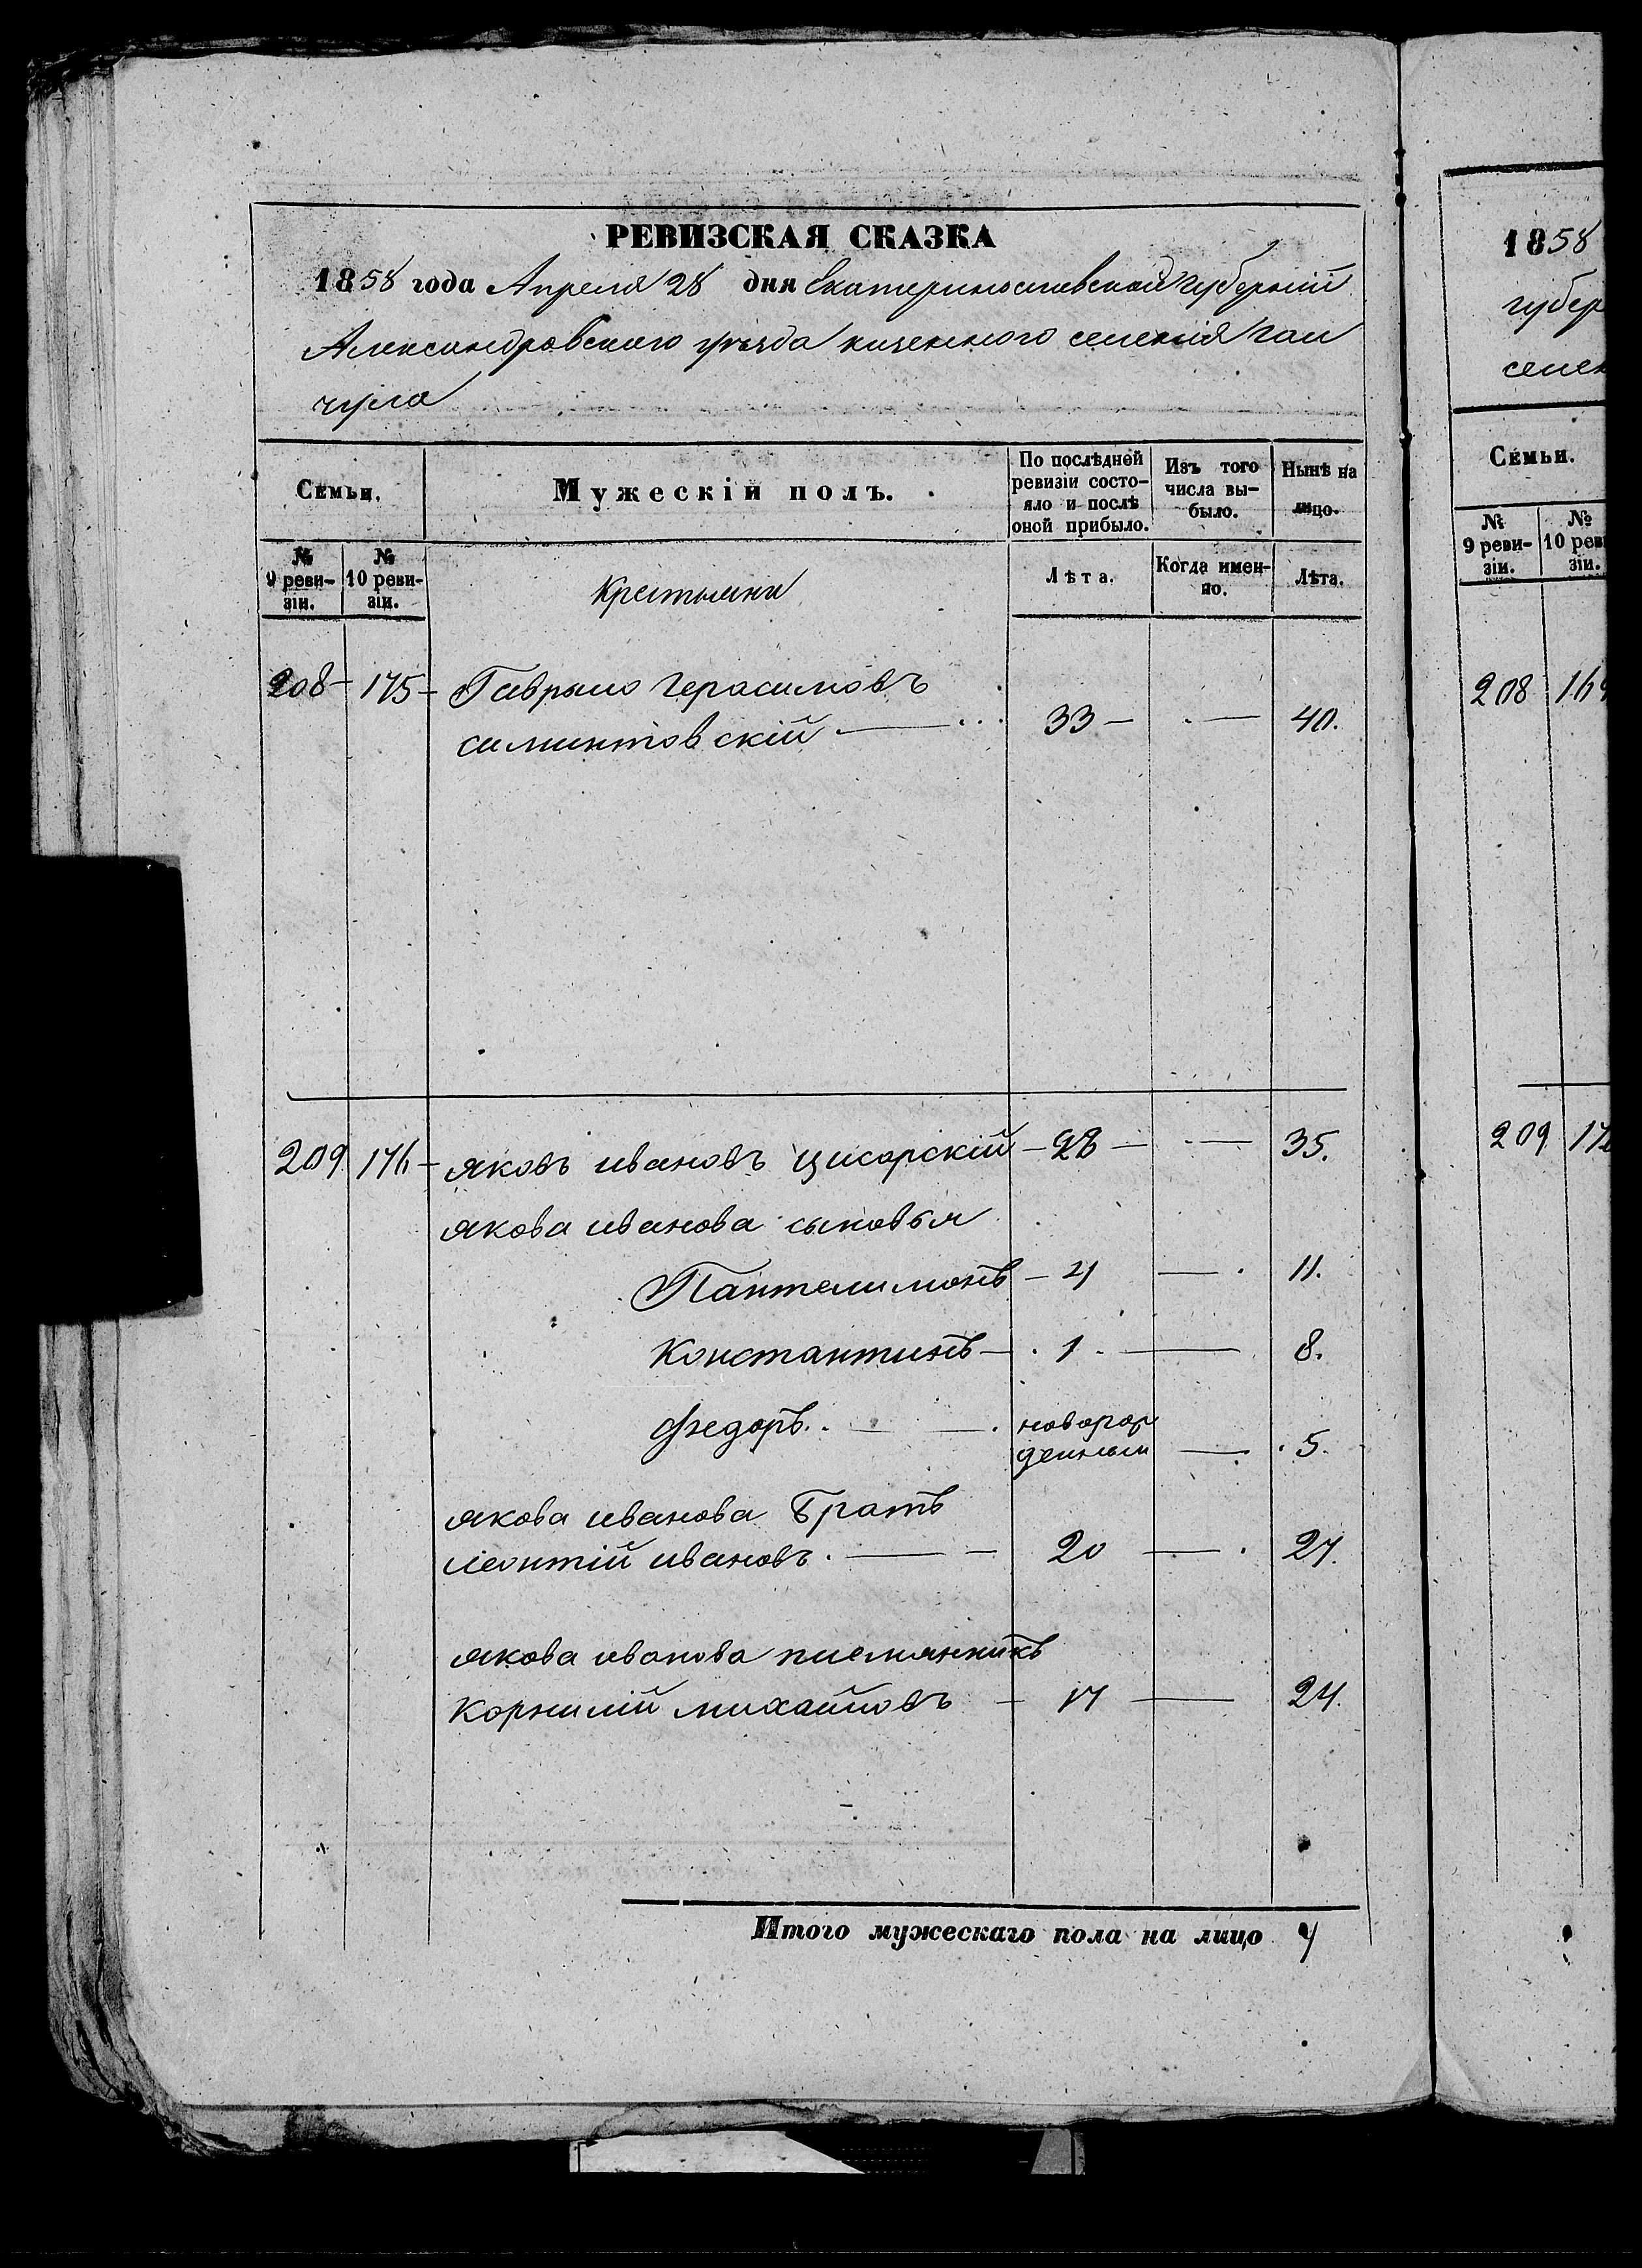 РЕВИЗСКАЯ СКАЗКА
1858 года Апреля 28 дня Екатеринославской губерніи
Александровского уѣзда казенного селенія Гай
чула
Семьи.
Мужескій полъ.
По послѣдней ревизіи состо-
яло и послѣ оной прибыло.
Изъ того числа вы-
было.
Нынѣ на лицо.
№ 9 реви-
зіи.
№ 10 реви-
зіи.
Крестьяни
Лѣта.
Когда имен-
но.
Лѣта.
208 - 175 - Гаврыло Герасимовъ
симинтовскій 33 - - 40.
209 176 - яковъ ивановъ цисарскій - 28 - - 35.
якова иванова сыновья
Пантелимонъ - 4 - 11.
Константинъ - 1 - 8.
Федоръ. - новорож
денный - 5.
якова иванова Братъ
леонтій ивановъ. - 20 - 27.
якова иванова племянникъ
корнилій михайловъ - 17 - 24.
Итого мужескаго пола на лицо 7
1858
губер
селен
Семьи.
№ 9 реви-
зіи.
№ 10 реви
зіи.
208
209